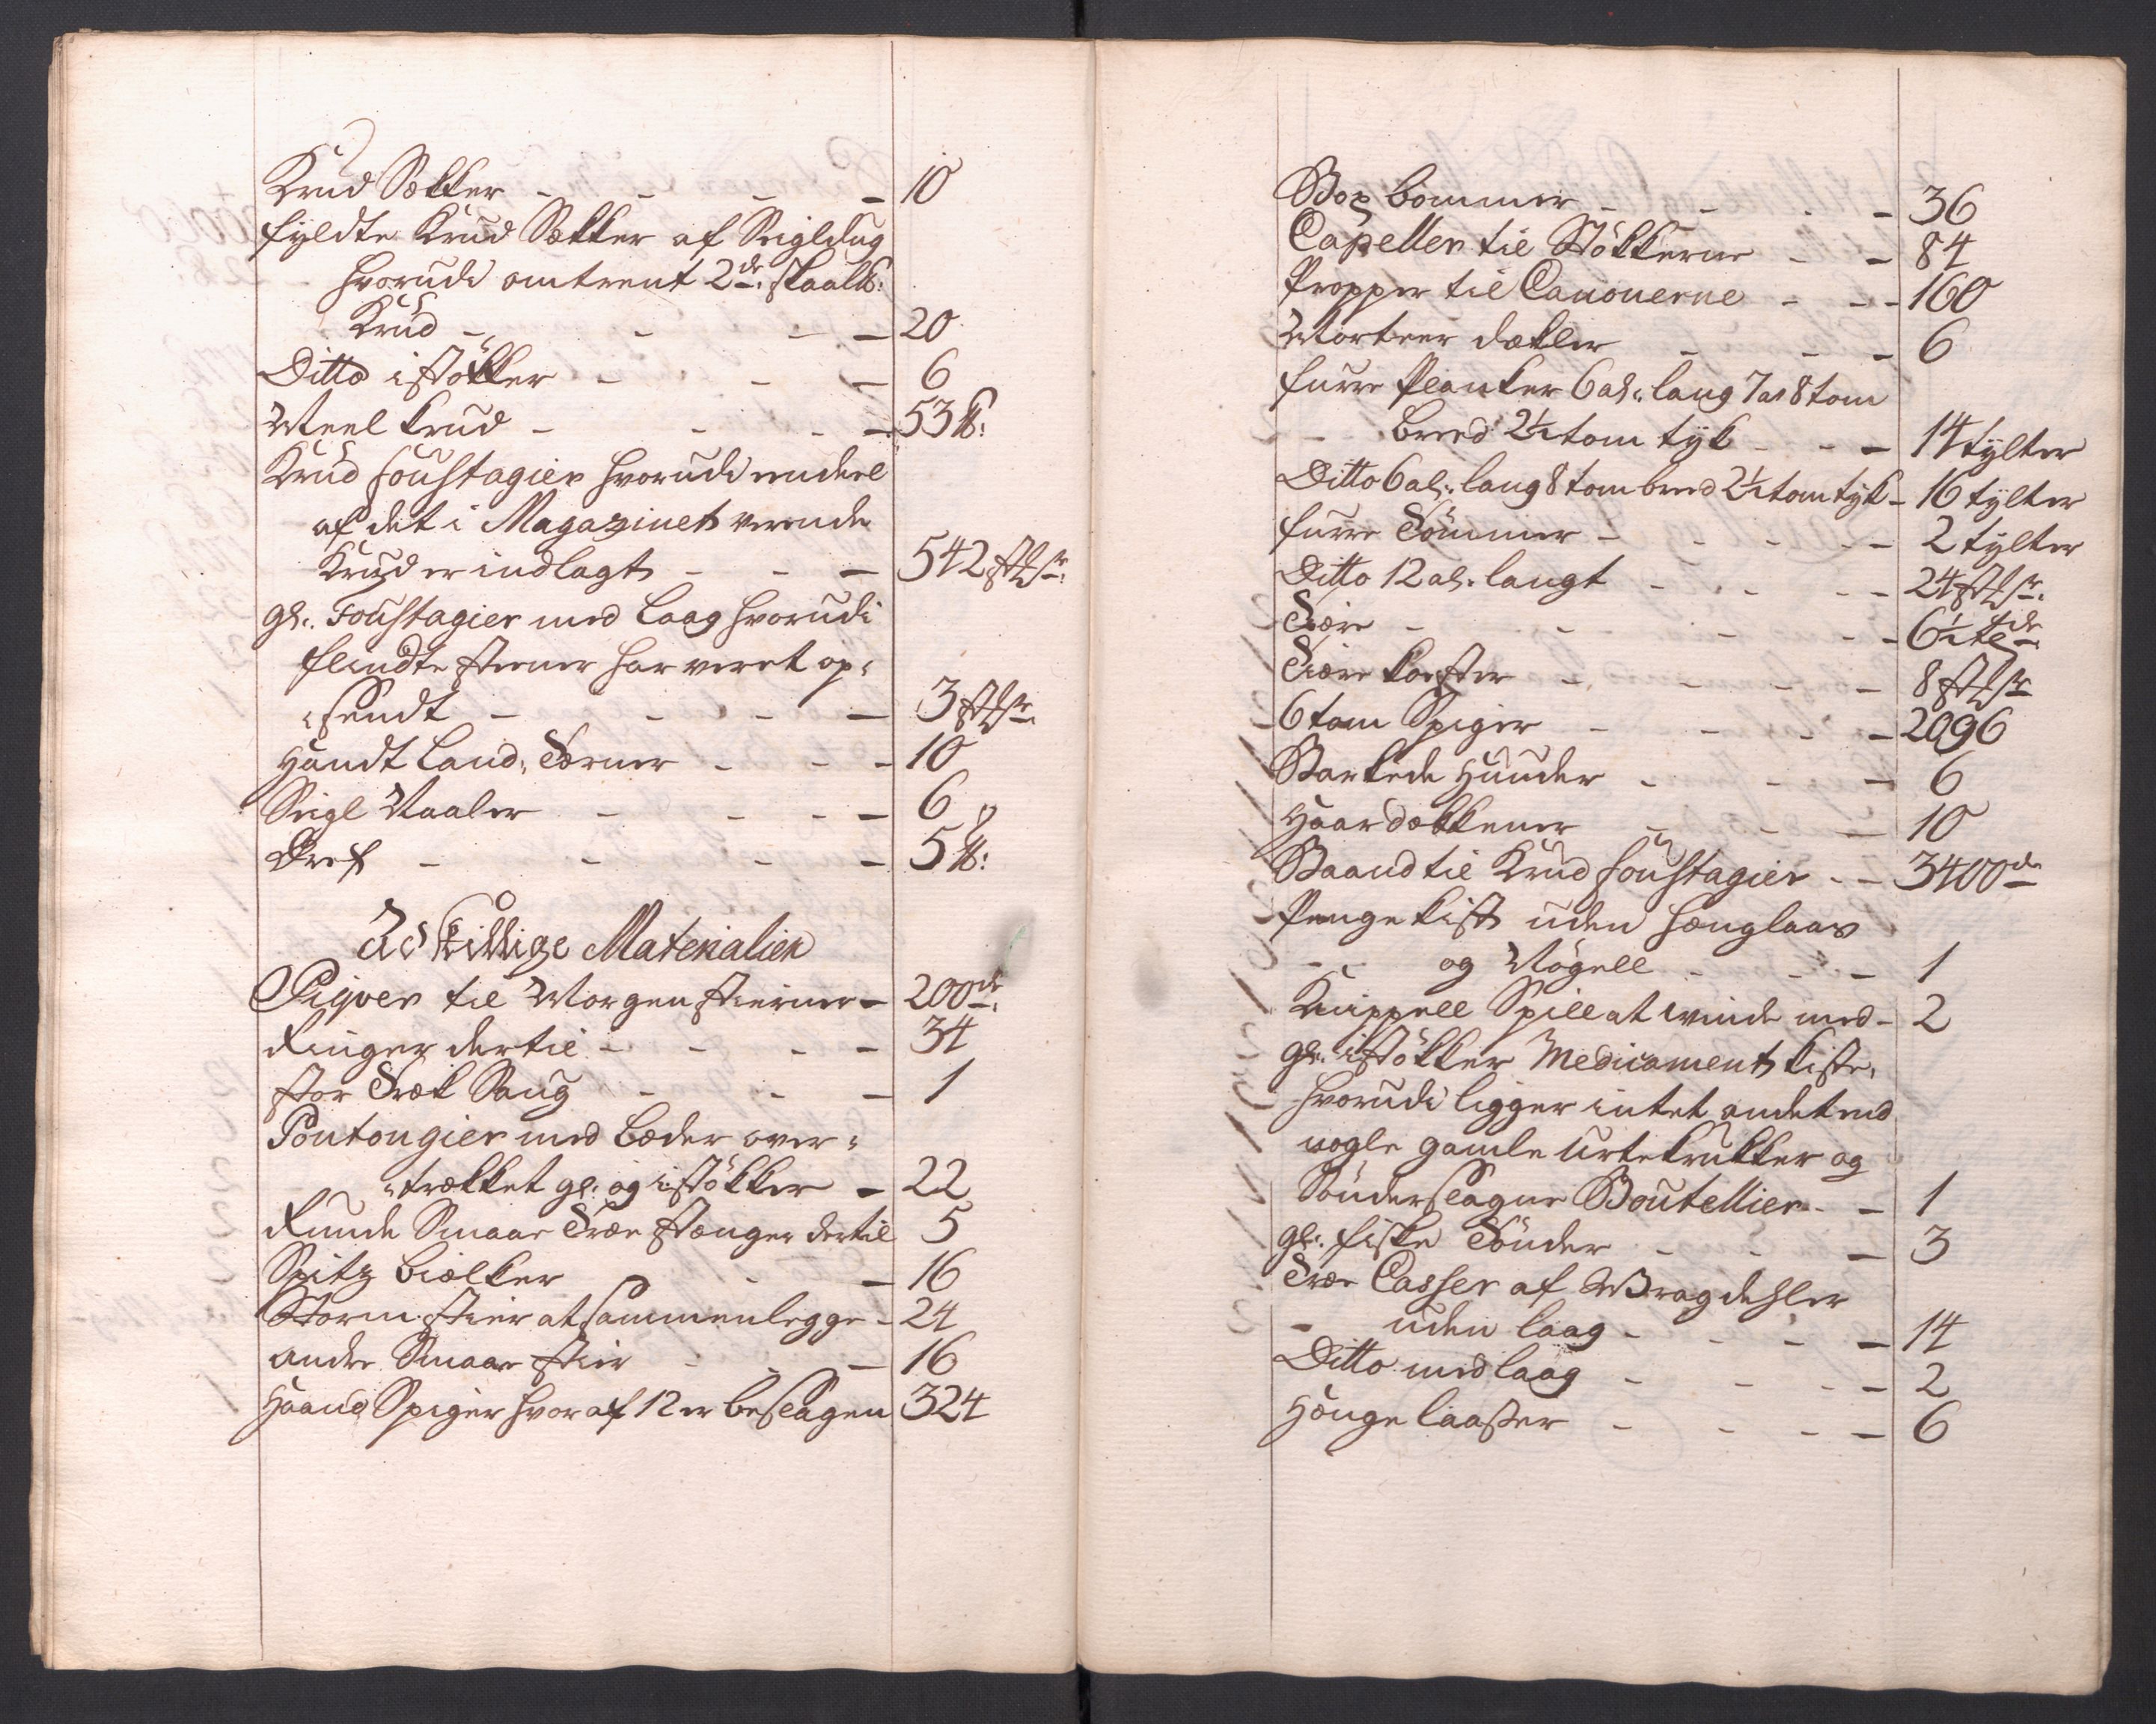 Krud Sækker - - - - 10
fyldte Krud Sækker af Seigldug
hvorudi omtrent 2de skaal℔:
Krud - - - - 20
Ditto i støkker - - - 6
Meel Krud - - - - 53 ℔:
Krud foustagier hvorudi endeel
af det i Magazinet verende
Krud er indlagt - - - 542 støkr:
gl: foustagier med Laag hvorudi
flindte steener har veret op-
sendt - - - - 3 støkr:
Handt Land Tærner - - - 10
Seigl Naaler - - - - 6
Dref - - - - 5 ℔:
Adskillige Materialier
Pigver til Morgenstierner - 200de:
Ringer dertil - - - - 34
stor Træk Saug - - - 1
Pontongier med Bæder over-
trækket gl: og i støkker - 22
Runde Smaae Træe stænger dertil 5
Spitz bielker - - 16
Storm stier at sammenlegge - 24
andre Smaae stier - - - 16
Haand Spiger hvor af 12 er beslagen 324
Bog bommer - - - - 36
Capeller til Støkkerne - - 84
Propper til Canonerne - - - 160
Morteer dækler - - - 6
furre Planker 6 al: lang 7 a 8 tom
breed 2½ tom tyk - - - 14 tylter
Ditto 6 al: lang 8 tom breed 2½ tom tyk - 16 tylter
furre Tømmer - - - - - 2 tylter
Ditto 12 al: langt - - - - - 24 støkr:
Tiære - - - - - 6½ tde:
Tiære koster - - - - - 8 støkr
6 tom Spiger - - - - 2096
Barkede Huuder - - - 6
Haardækkener - - - 10
Baand til Krud foustagier - - 3400de
Penge kist uden hænglaas
og Nøgell - - - 1
Knippell Spill at winde med - 2
gl: i støkker Medicament kiste,
hvorudi ligger intet andet end
nogle gamle urtekrukker og
Sønderslagne Boutellier - - 1
gl: fiske Tønder - - - 3
Træe Casser af Wragdehler
- uden laag - - - - 14
Ditto med laag - - - - 2
Hænge laaser - - - - 6